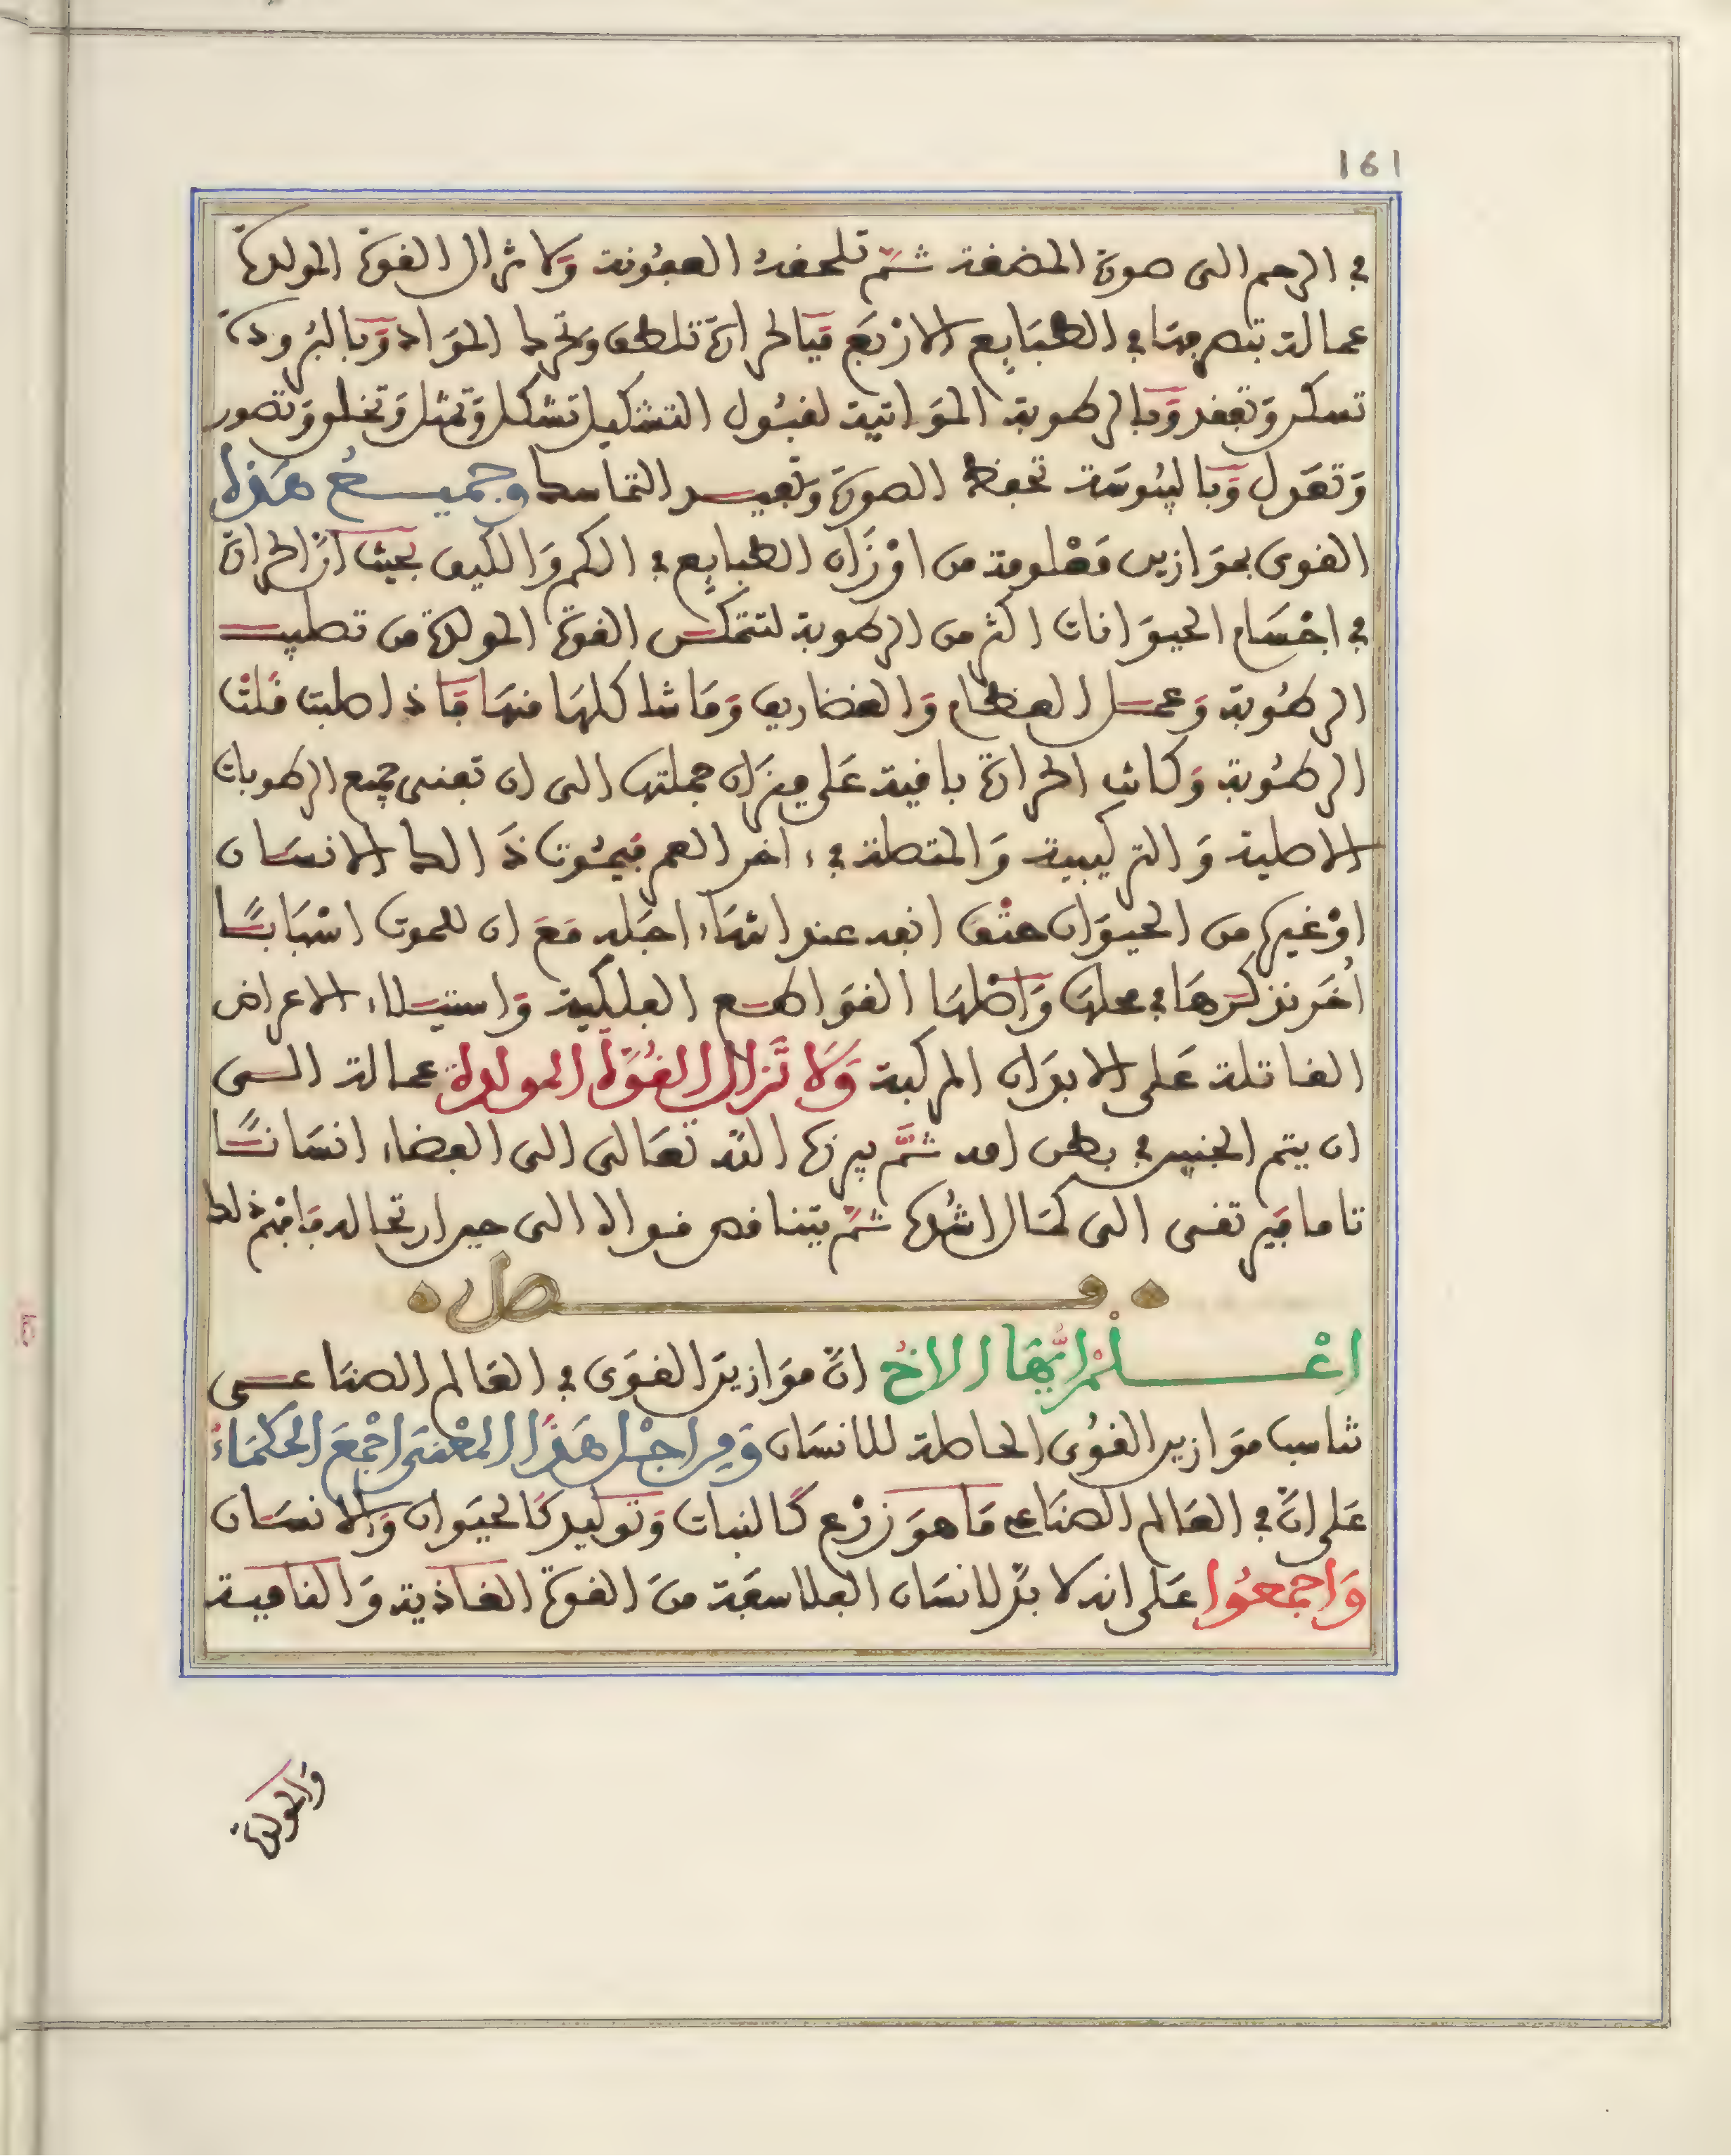 161
في الرحم الى صورة المضغة ثمّ تلحقه العفونة ولا تزال القوة المولدة
عمالة بتصرفها في الطبايع الاربع فبالحرارة تلطف وتحرك المواد وبالبرودة
تسكن وتعقد وبالرطوبة المواتية لقبول التشكيل تشكل وتمثل وتخلق وتصور
وتعدل وباليبوسة تحفظ الصورة وتفيد التماسك وجميع هذه
القوى بموازين معلومة من اوزان الطبايع في الكم والكيف بحيث انّ الحرارة
في اجسام الحيوانات اكثر من الرطوبة لتتمكن القوة المولدة من تصليب
الرطوبة وعمل العظام والغضاريف وما شاكلها منها فاذا صلبت قلت
الرطوبة وكانت الحرارة باقية على ميزان جملتها الى ان تفنى جميع الرطوبات
الاصلية والتركيبية والمتصلة في اخر العمر فيموت ذالك الانسان
اوغيره من الحيوان حتف انفه عند انتهاء اجله مع ان للموت اسبابًا
أخر نذكرها في محلها واصلها القواطع الفلكية واستيلاء الاعراض
القاتلة على الابدان المركبة ولا تزال القوة المولدة عمالة الى
ان يتم الجنين في بطن امه ثمّ يبرزه اللّه تعالى الى الفضاء انسانًا
تاما فيرتقى الى كمال اشده ثمّ يتناقص قواه الى حين ارتحاله فافهم ذلك
فصل
اعْلم ايّها الاخ انّ موازين القوى في العالم الصناعى
تناسب موازين القوى الحاصلة للانسان ومن اجل هذا المعْنى اجْمع الحكماءُ
على انّ في العالم الصناعي ما هو زرْع كالنبات وتوليد كالحيوان والانسان
واجمعوا على انه لا بدّ لانسان الفلاسفة من القوة الغاذية والنامية
والمولدة